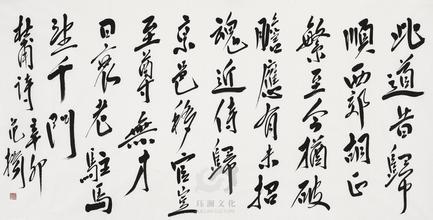 此道昔歸
順西郊胡正
繁至今猶破
膽應有未招
魂近侍歸
京邑移官豈
至尊無才
日衰老駐馬
望千門
杜甫詩
辛卯
范
文化